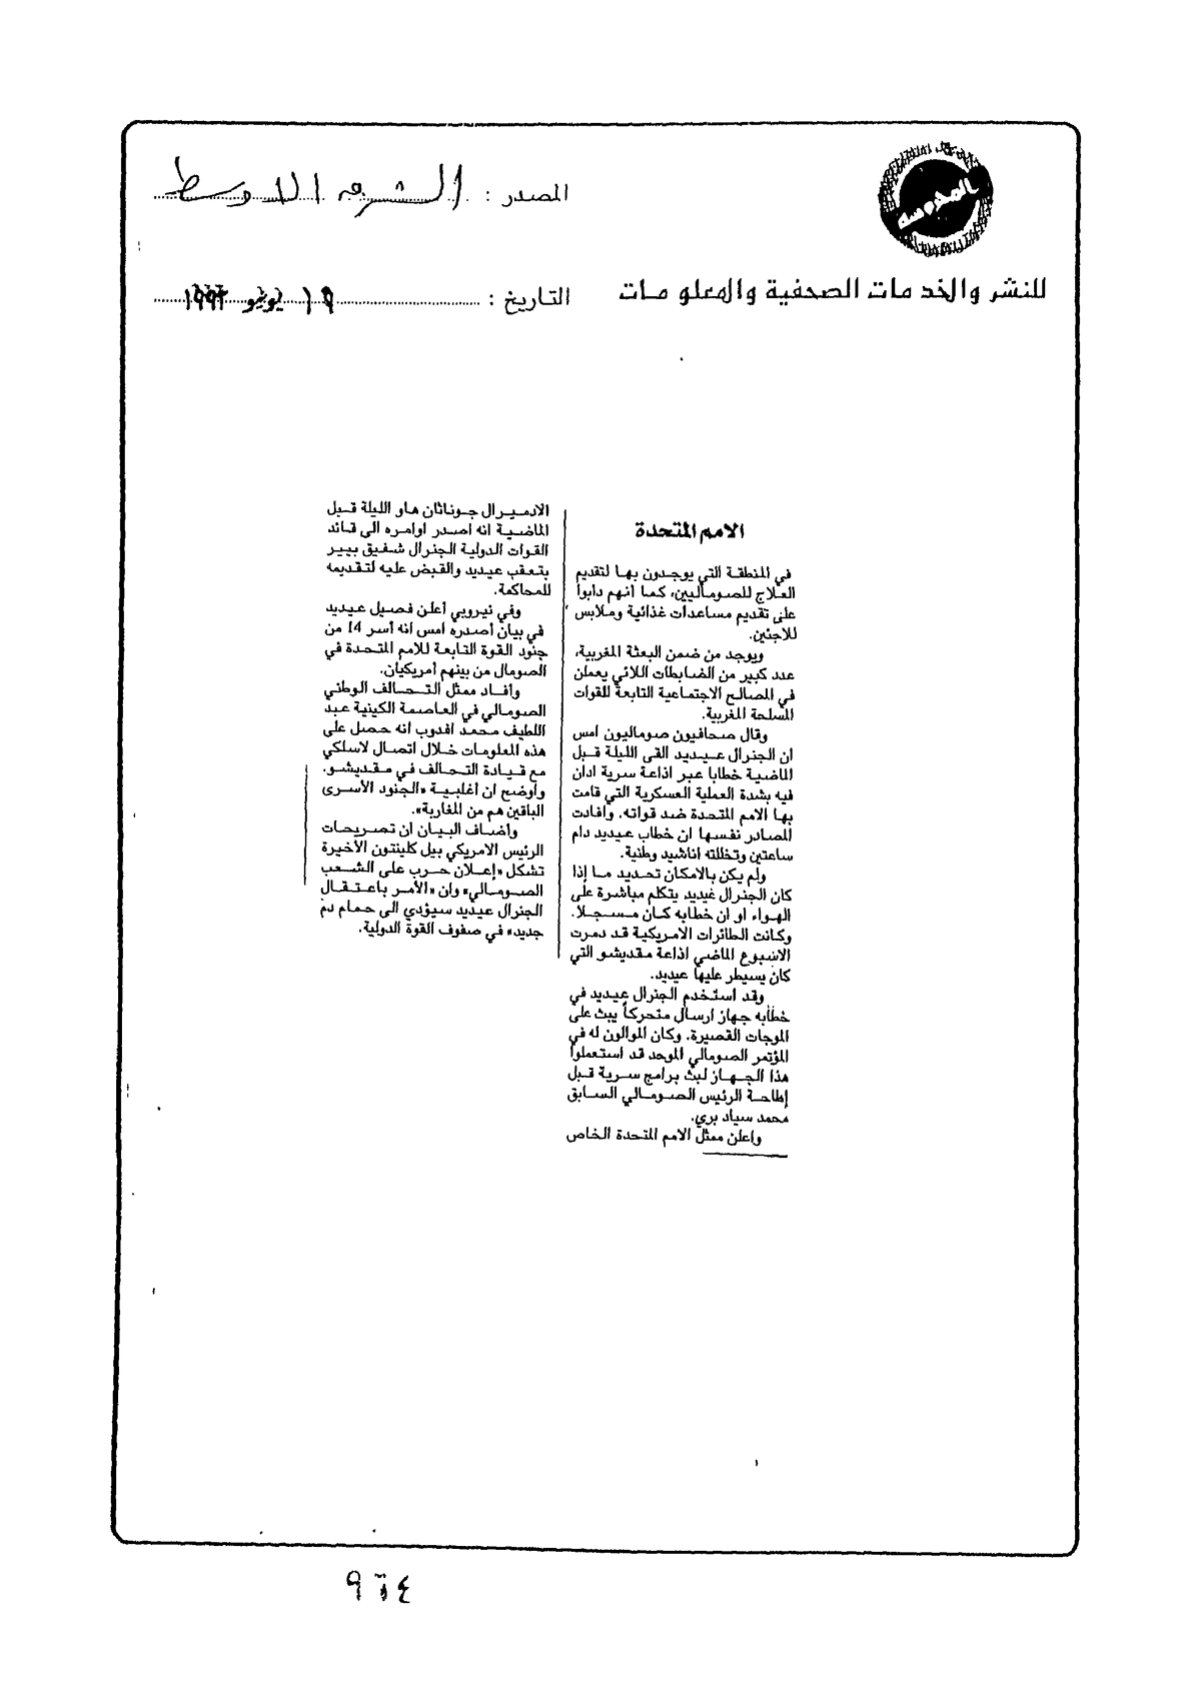 المحروسة
للنشر والخدمات الصحفية والمعلومات
المصدر : الشرق الاوسط
التاريخ : ١٩ يونيو ١٩٩٣
الامم المتحدة
في المنطقة التي يوجدون بها لتقديم
العلاج للصوماليين، كما انهم دابوا
على تقديم مساعدات غذائية وملابس
للاجئين.
ويوجد من ضمن البعثة المغربية،
عدد كبير من الضابطات اللائي يعملن
في المصالح الاجتماعية التابعة للقوات
المسلحة المغربية.
وقال صحافيون صوماليون امس
ان الجنرال عيديد القى الليلة قبل
الماضية خطابا عبر اذاعة سرية ادان
فيه بشدة العملية العسكرية التي قامت
بها الامم المتحدة ضد قواته. وأفادت
المصادر نفسها ان خطاب عيديد دام
ساعتين وتخللته اناشيد وطنية.
ولم يكن بالامكان تحديد ما إذا
كان الجنرال عيديد يتكلم مباشرة على
الهواء او ان خطابه كان مسجلا.
وكانت الطائرات الامريكية قد دمرت
الاسبوع الماضي اذاعة مقديشو التي
كان يسيطر عليها عيديد.
وقد استخدم الجنرال عيديد في
خطابه جهاز ارسال متحركاً يبث على
الموجات القصيرة. وكان الموالون له في
المؤتمر الصومالي الموحد قد استعملوا
هذا الجهاز لبث برامج سرية قبل
إطاحة الرئيس الصومالي السابق
محمد سياد بري.
واعلن ممثل الامم المتحدة الخاص
الادميرال جوناثان هاو الليلة قبل
الماضية انه اصدر اوامره الى قائد
القوات الدولية الجنرال شفيق بيير
بتعقب عيديد والقبض عليه لتقديمه
للمحاكمة.
وفي نيروبي أعلن فصيل عيديد
في بيان أصدره امس انه أسر 14 من
جنود القوة التابعة للامم المتحدة في
الصومال من بينهم أمريكيان.
وأفاد ممثل التحالف الوطني
الصومالي في العاصمة الكينية عبد
اللطيف محمد افدوب انه حصل على
هذه المعلومات خلال اتصال لاسلكي
مع قيادة التحالف في مقديشو.
وأوضح ان أغلبية «الجنود الأسرى
الباقين هم من المغاربة».
وأضاف البيان ان تصريحات
الرئيس الامريكي بيل كلينتون الأخيرة
تشكل «إعلان حرب على الشعب
الصومالي» وان «الأمر باعتقال
الجنرال عيديد سيؤدي الى حمام دم
جديد» في صفوف القوة الدولية.